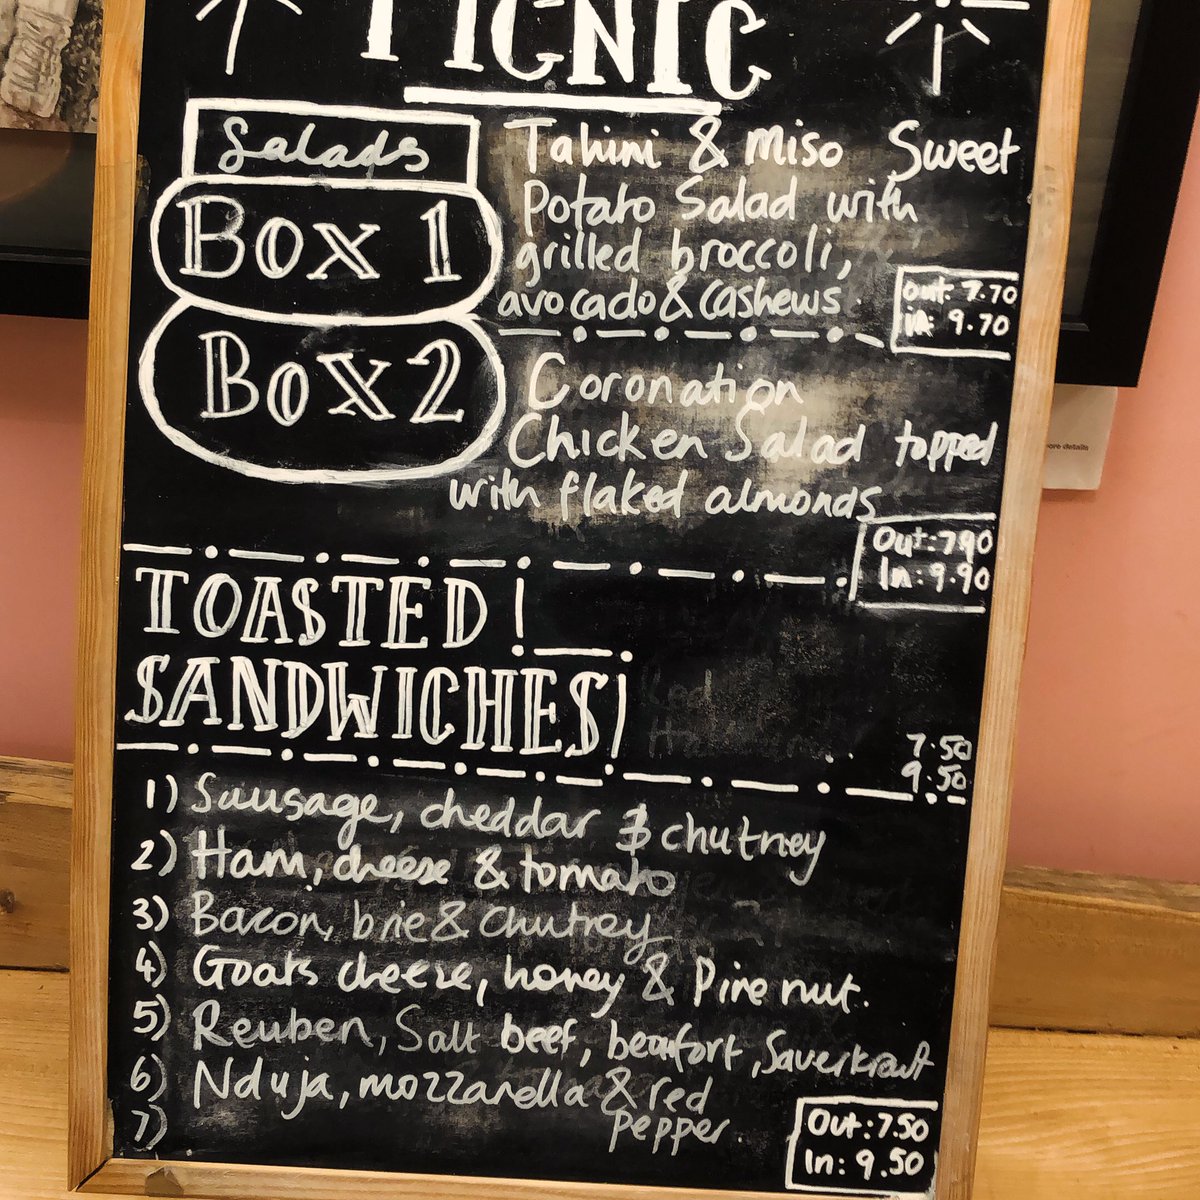 PICNIC
Salads
Box 1
Tahini & Miso Sweet
Potato Salad with
grilled broccoli,
avocado & cashews
Out: 7.70
in: 9.70
Box 2
Coronation
Chicken Salad topped
with flaked almonds
Out: 7.90
In: 9.90
TOASTED!
SANDWICHES!
7.50
9.50
1) Sausage, cheddar & chutney
2) Ham, cheese & tomato
3) Bacon, brie & Chutney
4) Goats cheese, honey & Pine nut.
5) Reuben, Salt beef, beaufort, Sauerkraut
6) Nduja, mozzarella & red
pepper.
7)
Out: 7.50
In: 9.50
ore details